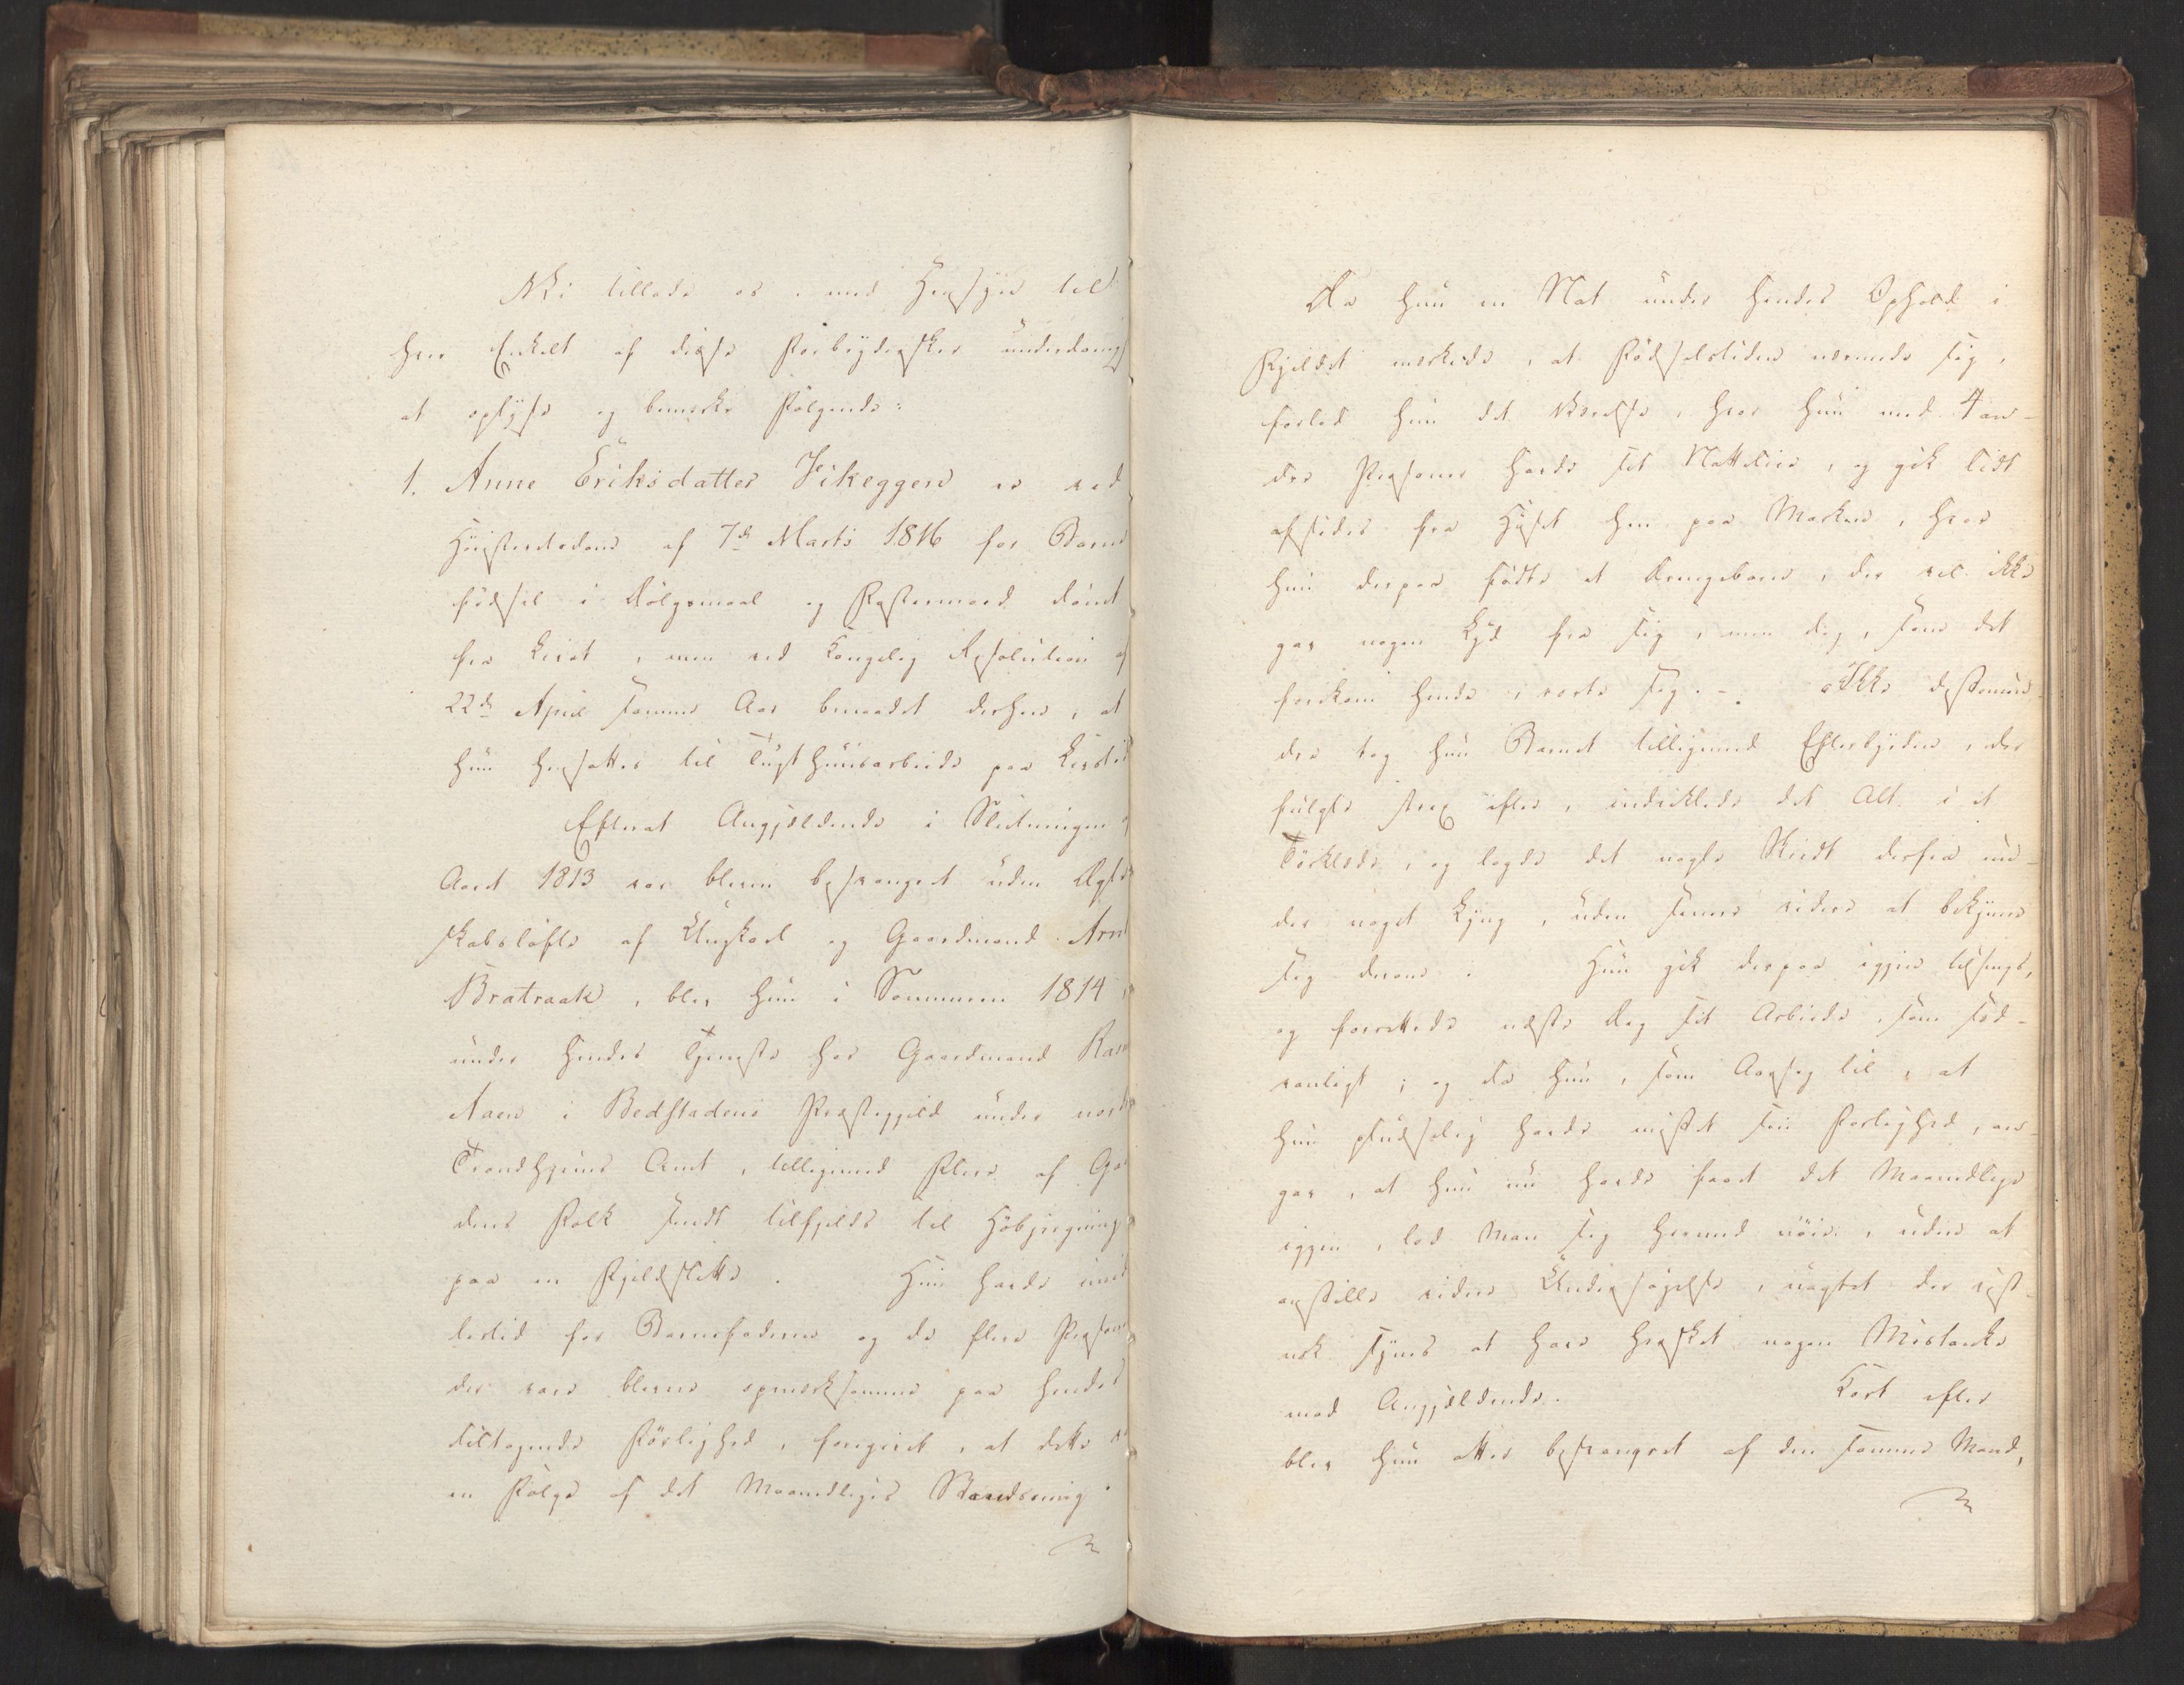 Vi tillade os, med Hensyn til
hver Enkelt af disse Forbrydersker underdanigst
at oplyse og bemerke Følgende:
1. Anne Eriksdatter Vikeggen er ved
Høiesteretsdom af 7de Marts 1816 for Barne
fødsel i Dølgsmaal og Fostermord dømt
fra Livet, men ved Kongelig Resolution af
22de April samme Aar benaadet derhen, at
hun hensættes til Tugthuusarbeide paa Livstid
Efterat Angjeldende i Slutningen af
Aaret 1813 var bleven besvangret uden Ægte
skabsløfte af Ungkarl og Gaardmand Arnt
Bratraak, blev hun i Sommeren 1814,
under hendes Tjeneste hos Gaardmand
Aaen i Bedstadens Præstegjeld under nordre
Trondhjems Amt, tilligemed Flere af Gaar
dens Folk sendt tilfjelds til Høbjergning
paa en Fjeldslette. Hun havde imid
lertid for Barnefaderen og de flere Personer
der vare blevne opmerksomme paa hendes
tiltagende Førlighed, foregivet, at dette var
en Følge af det Maanedliges Standsning.
Da hun en Nat under hendes Ophold i
Fjeldet merkede, at Fødselstiden nærmede sig,
forlod hun det Værelse, hvor hun med 4 an-
dre Personer havde sit Natteleie, og gik lidt
afsides fra Huset hen paa Marken, hvor
hun derpaa fødte et Drengebarn, der vel ikke
gav nogen Lyd fra sig, men dog, som det
forekom hende, rørte sig. - Ikke destomin-
dre tog hun Barnet tilligemed Efterbyrden, der
fulgte strax efter, indviklede det Alt i et
Tørklæde, og lagde det nogle Skridt derfra un-
der noget Lyng, uden senere videre at bekymre
sig derom. Hun gik derpaa igjen tilsengs,
og forrettede næste Dag sit Arbeide, som sæd-
vanligt; og da hun, som Aarsag til, at
hun pludselig havde mistet sin Førlighed, an-
gav, at hun nu havde faaet det Maanedlige
iggjen, lod Man sig hermed nøie, uden at
anstille videre Undersøgelse, uagtet der rigt-
nok synes at have hersket nogen Mistanke
mod Angjeldende. Kort efter
blev hun atter besvangret af den samme Mand,